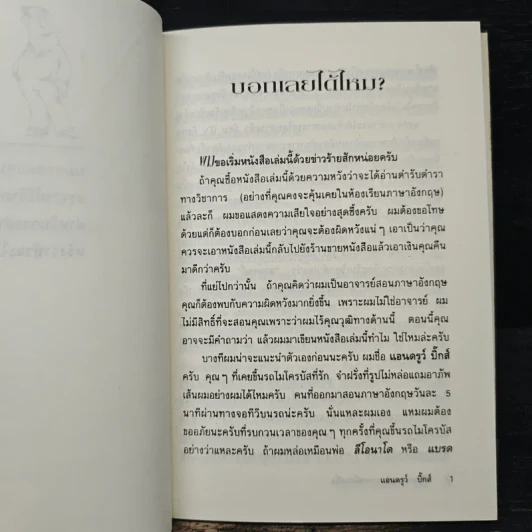 บอกเลยได้ไหม?
ผมขอเริ่มหนังสือเล่มนี้ด้วยข่าวร้ายสักหน่อยครับ
ถ้าคุณซื้อหนังสือเล่มนี้ด้วยความหวังว่าจะได้อ่านตำรับตำรา
ทางวิชาการ (อย่างที่คุณคงจะคุ้นเคยในห้องเรียนภาษาอังกฤษ)
แล้วละก็ ผมขอแสดงความเสียใจอย่างสุดซึ้งครับ ผมต้องขอโทษ
ด้วยแต่ก็ต้องบอกก่อนเลยว่าคุณจะต้องผิดหวังแน่ ๆ เอาเป็นว่าคุณ
ควรจะเอาหนังสือเล่มนี้กลับไปยังร้านขายหนังสือแล้วเอาเงินคุณคืน
มาดีกว่าครับ
ที่แย่ไปกว่านั้น ถ้าคุณคิดว่าผมเป็นอาจารย์สอนภาษาอังกฤษ
คุณก็ต้องพบกับความผิดหวังมากยิ่งขึ้น เพราะผมไม่ใช่อาจารย์ ผม
ไม่มีสิทธิ์ที่จะสอนคุณเพราะว่าผมไร้คุณวุฒิทางด้านนี้ ตอนนี้คุณ
อาจจะมีคำถามว่า แล้วผมมาเขียนหนังสือเล่มนี้ทำไม ใช่ไหมล่ะครับ
บางทีผมน่าจะแนะนำตัวเองก่อนนะครับ ผมชื่อ แอนดรูว์ บิ๊กส์
ครับ คุณ ๆ ที่เคยขึ้นรถไมโครบัสที่รัก จำฝรั่งที่รูปไม่หล่อแถมอาภัพ
เส้นผมอย่างผมได้ไหมครับ คนที่ออกมาสอนภาษาอังกฤษวันละ 5
นาทีผ่านทางจอทีวีบนรถน่ะครับ นั่นแหละผมเอง แหมผมต้อง
ขออภัยนะครับที่รบกวนเวลาของคุณ ๆ ทุกครั้งที่คุณขึ้นรถไมโครบัส
อย่างว่าแหละครับ ถ้าผมหล่อเหมือนพ่อ ลีโอนาโด หรือ แบรด
แอนดรูว์ บิ๊กส์ 1